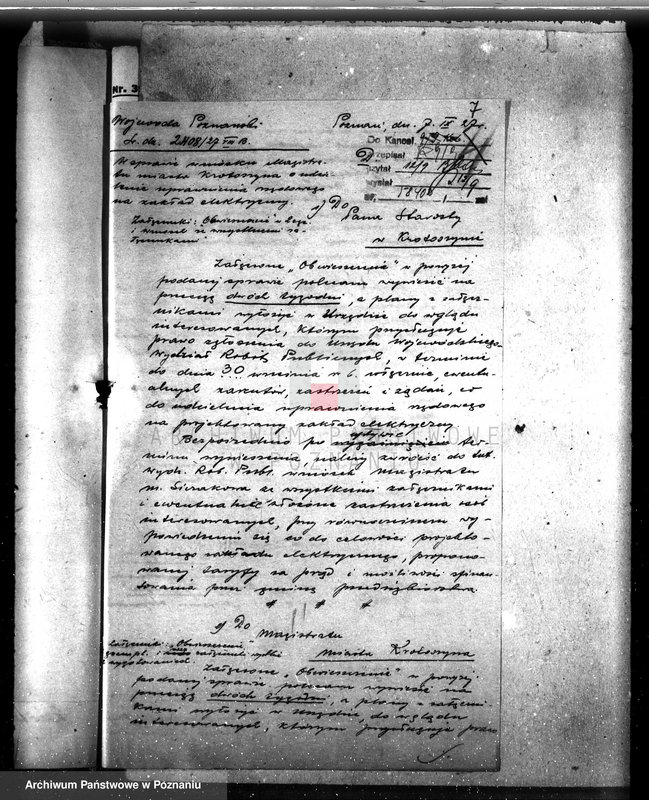 Nr. 3
7
Wojewoda Poznański
L. dz. 2408/27 VIII B.
Poznań, dn. 7. IX 27 r.
Do Kancel.
Przepisał
czytał 12/9
wysłał 13/9
W sprawie wniosku Magistra-
tu miasta Krotoszyna o udzie-
lenie uprawnienia rządowego
na zakład elektryczny.
Załączniki: Obwieszczenie
i wniosek ze wszystkiemi za-
łącznikami
1) Do
Pana Starosty
w Krotoszynie
Załączone „Obwieszczenie" w powyżej
podanej sprawie polecam wywiesić na
przeciąg dwóch tygodni, a plany z załącz-
nikami wyłożyć w Urzędzie do wglądu
interesowanych, którym przysługuje
prawo zgłoszenia do Urzędu Wojewódzkiego
Wydział Robót Publicznych, w terminie
do dnia 30 września r. b. włącznie, ewentu-
alnych zarzutów, zastrzeżeń i żądań, co
do udzielenia uprawnienia rządowego
na projektowany zakład elektryczny.
Bezpośrednio po upływie ter-
minu wywieszenia należy zwrócić do tut.
Wydz. Rob. Publ. wniosek Magistratu
m. Sierakowa ze wszystkiemi załącznikami
i ewentualnie złożone zastrzeżenia osób
interesowanych, przy równoczesnem wy-
powiedzeniu się co do celowości projekto-
wanego zakładu elektrycznego, propono-
wanej taryfy za prąd i możliwości sfinan-
sowania przez gminę przedsiębiorstwa.
2) Do
Magistratu
miasta Krotoszyna
Załączniki: „Obwieszczenie
Załączone „Obwieszczenie" w powyżej
podanej sprawie polecam wywiesić na
przeciąg dwóch tygodni, a plany z załącz-
nikami wyłożyć w Urzędzie, do wglądu
interesowanych, którym przysługuje prawo
ARCHIWUM PAŃSTWOWE
W POZNANIU
Archiwum Państwowe w Poznaniu